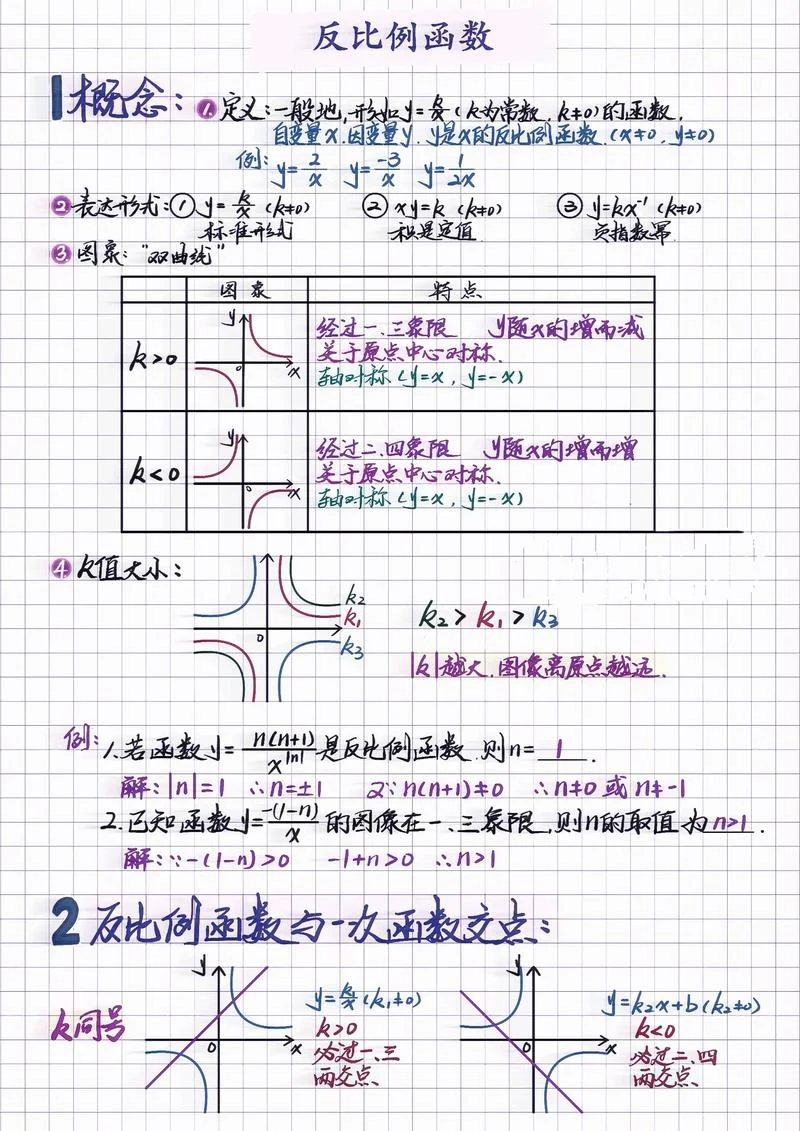 反比例函数
1 概念：① 定义：一般地，形如y=k/x（k为常数，k≠0）的函数，
自变量x，因变量y，y是x的反比例函数．（x≠0，y≠0）
例：y=2/x y=-3/x y=1/2x
② 表达形式：① y=k/x（k≠0） ② xy=k（k≠0） ③ y=kx⁻¹（k≠0）
标准形式 积是定值 负指数幂
③ 图象：“双曲线”
图象 特点
y
x
0
k>0
经过一、三象限 y随x的增而减
关于原点中心对称．
轴对称（y=x，y=-x）
y
x
0
k<0
经过二、四象限 y随x的增而增
关于原点中心对称．
轴对称（y=x，y=-x）
④ k值大小：
0
k₂
k₁
k₃
k₂>k₁>k₃
|k|越大，图像离原点越远．
例：1.若函数y=n(n+1)/x^|n|是反比例函数，则n=1．
解：|n|=1 ∴n=±1 又∵n(n+1)≠0 ∴n≠0或n≠-1
2.已知函数y=-(1-n)/x的图像在一、三象限，则n的取值为n>1．
解：∵-(1-n)>0 -1+n>0 ∴n>1
2 反比例函数与一次函数交点：
k同号
y
x
0
y=k₁/x（k₁≠0）
k>0
必过一、三
两交点
y
x
0
y=k₂x+b（k₂≠0）
k<0
必过二、四
两交点